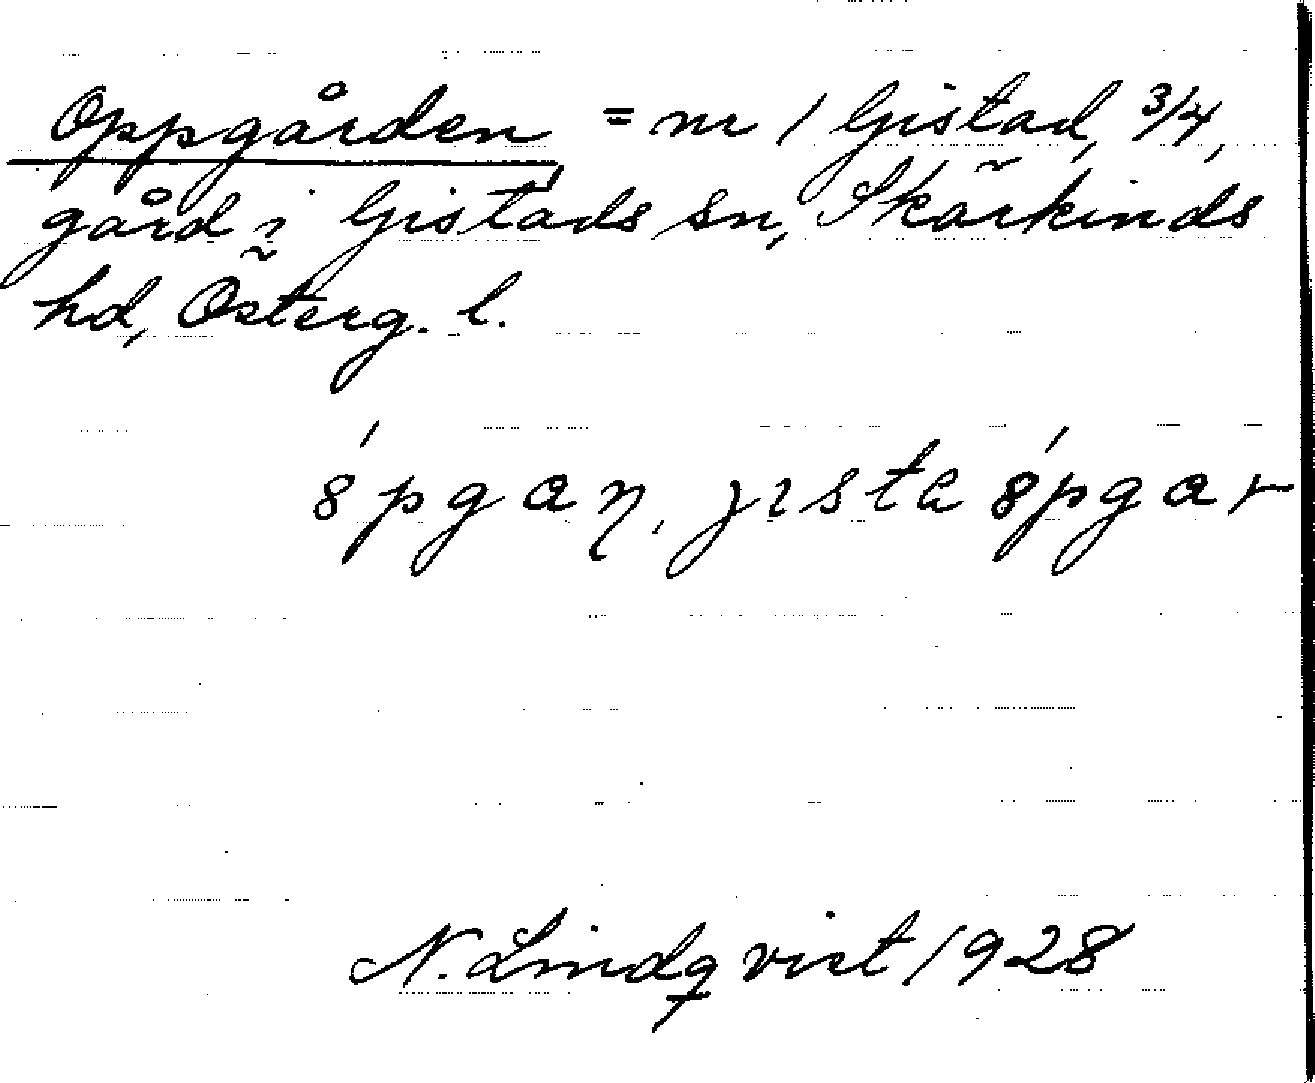 Oppgården, = nr 1 Gistad, 3/4,
gård i Gistads sn, Skärkinds
hd, Österg. l.
8́pgaŋ, jista 8́pgar
N. Lindqvist 1928